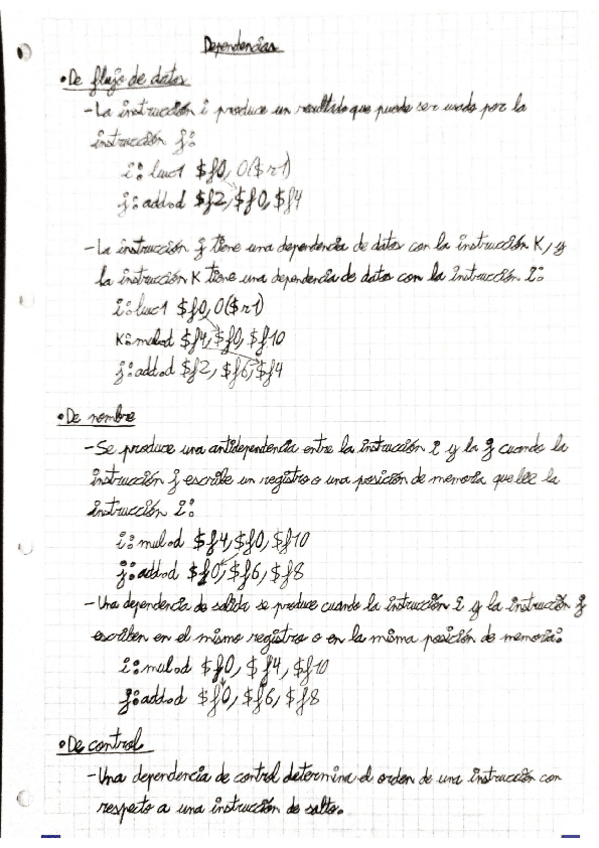 Dependencias
•De flujo de datos
-La instrucción i produce un resultado que puede ser usado por la
instrucción j:
i: lwc1 $f0, 0($r1)
j: add.d $f2, $f0, $f4
-La instrucción j tiene una dependencia de datos con la instrucción K, y
la instrucción K tiene una dependencia de datos con la instrucción i:
i: lwc1 $f0, 0($r1)
K: mul.d $f4, $f0, $f10
j: add.d $f2, $f6, $f4
•De nombre
-Se produce una antidependencia entre la instrucción i y la j cuando la
instrucción j escribe un registro o una posición de memoria que lee la
instrucción i:
i: mul.d $f4, $f0, $f10
j: add.d $f0, $f6, $f8
-Una dependencia de salida se produce cuando la instrucción i y la instrucción j
escriben en el mismo registro o en la misma posición de memoria:
i: mul.d $f0, $f4, $f10
j: add.d $f0, $f6, $f8
•De control
-Una dependencia de control determina el orden de una instrucción con
respecto a una instrucción de salto.